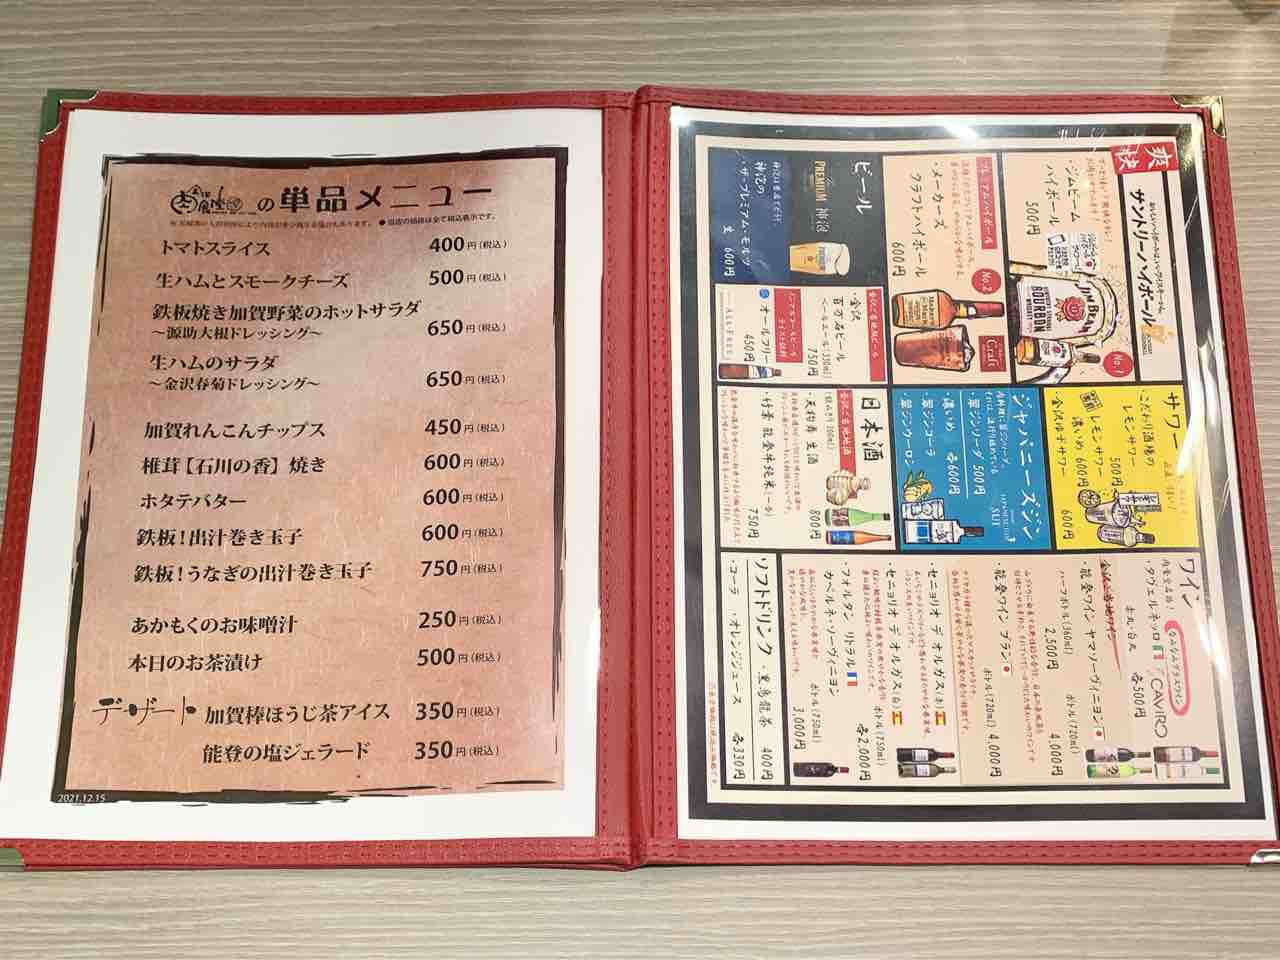 の単品メニュー
●当店の価格は全て税込表示です。
トマトスライス 400円(税込)
生ハムとスモークチーズ 500円(税込)
鉄板焼き加賀野菜のホットサラダ
～源助大根ドレッシング～ 650円(税込)
生ハムのサラダ
～金沢春菊ドレッシング～ 650円(税込)
加賀れんこんチップス 450円(税込)
椎茸【石川の香】焼き 600円(税込)
ホタテバター 600円(税込)
鉄板！出汁巻き玉子 600円(税込)
鉄板！うなぎの出汁巻き玉子 750円(税込)
あかもくのお味噌汁 250円(税込)
本日のお茶漬け 500円(税込)
デザート 加賀棒ほうじ茶アイス 350円(税込)
能登の塩ジェラード 350円(税込)
2021.12.15
爽快
サントリーハイボール
・ジムビーム
ハイボール
500円
JIM BEAM
BOURBON
No.1
プレミアムハイボール
・メーカーズ
クラフトハイボール
600円
No.2
Maker's Mark
Craft
ビール
The PREMIUM 神泡
神泡の
・ザ・プレミアム・モルツ
生 600円
金沢ご当地地ビール
・金沢
百万石ビール
ペールエール(330ml)
750円
ノンアルコールビール
テイスト飲料
・オールフリー
450円
ALL-FREE
サワー
・こだわり酒場の
レモンサワー
500円
レモンサワー
濃いめ 600円
・金沢ゆずサワー
600円
ジャパニーズジン
JAPANESE GIN
SUI
・翠ジンソーダ 500円
・濃いめ 各600円
・翠ジンコーラ
・翠ジンウーロン
日本酒
金沢ご当地地酒
・天狗舞 生酒
800円
・竹葉 能登牛純米(一合)
750円
ワイン
・タヴェルネッロ
赤丸・白丸
各500円
なみなみグラスワイン
CAVIRO
金沢ご当地ワイン
・能登ワイン ヤマソーヴィニヨン
ハーフボトル(360ml) ボトル(720ml)
2,500円 4,000円
・能登ワイン ブラン
ボトル(720ml)
4,000円
・セニョリオ デ オルガス(赤)
・セニョリオ デ オルガス(白)
ボトル(750ml)
各2,000円
・フォルタン リトラル
カベルネ・ソーヴィニヨン
ボトル(750ml)
3,000円
ソフトドリンク
・黒烏龍茶 400円
・コーラ ・オレンジジュース 各330円